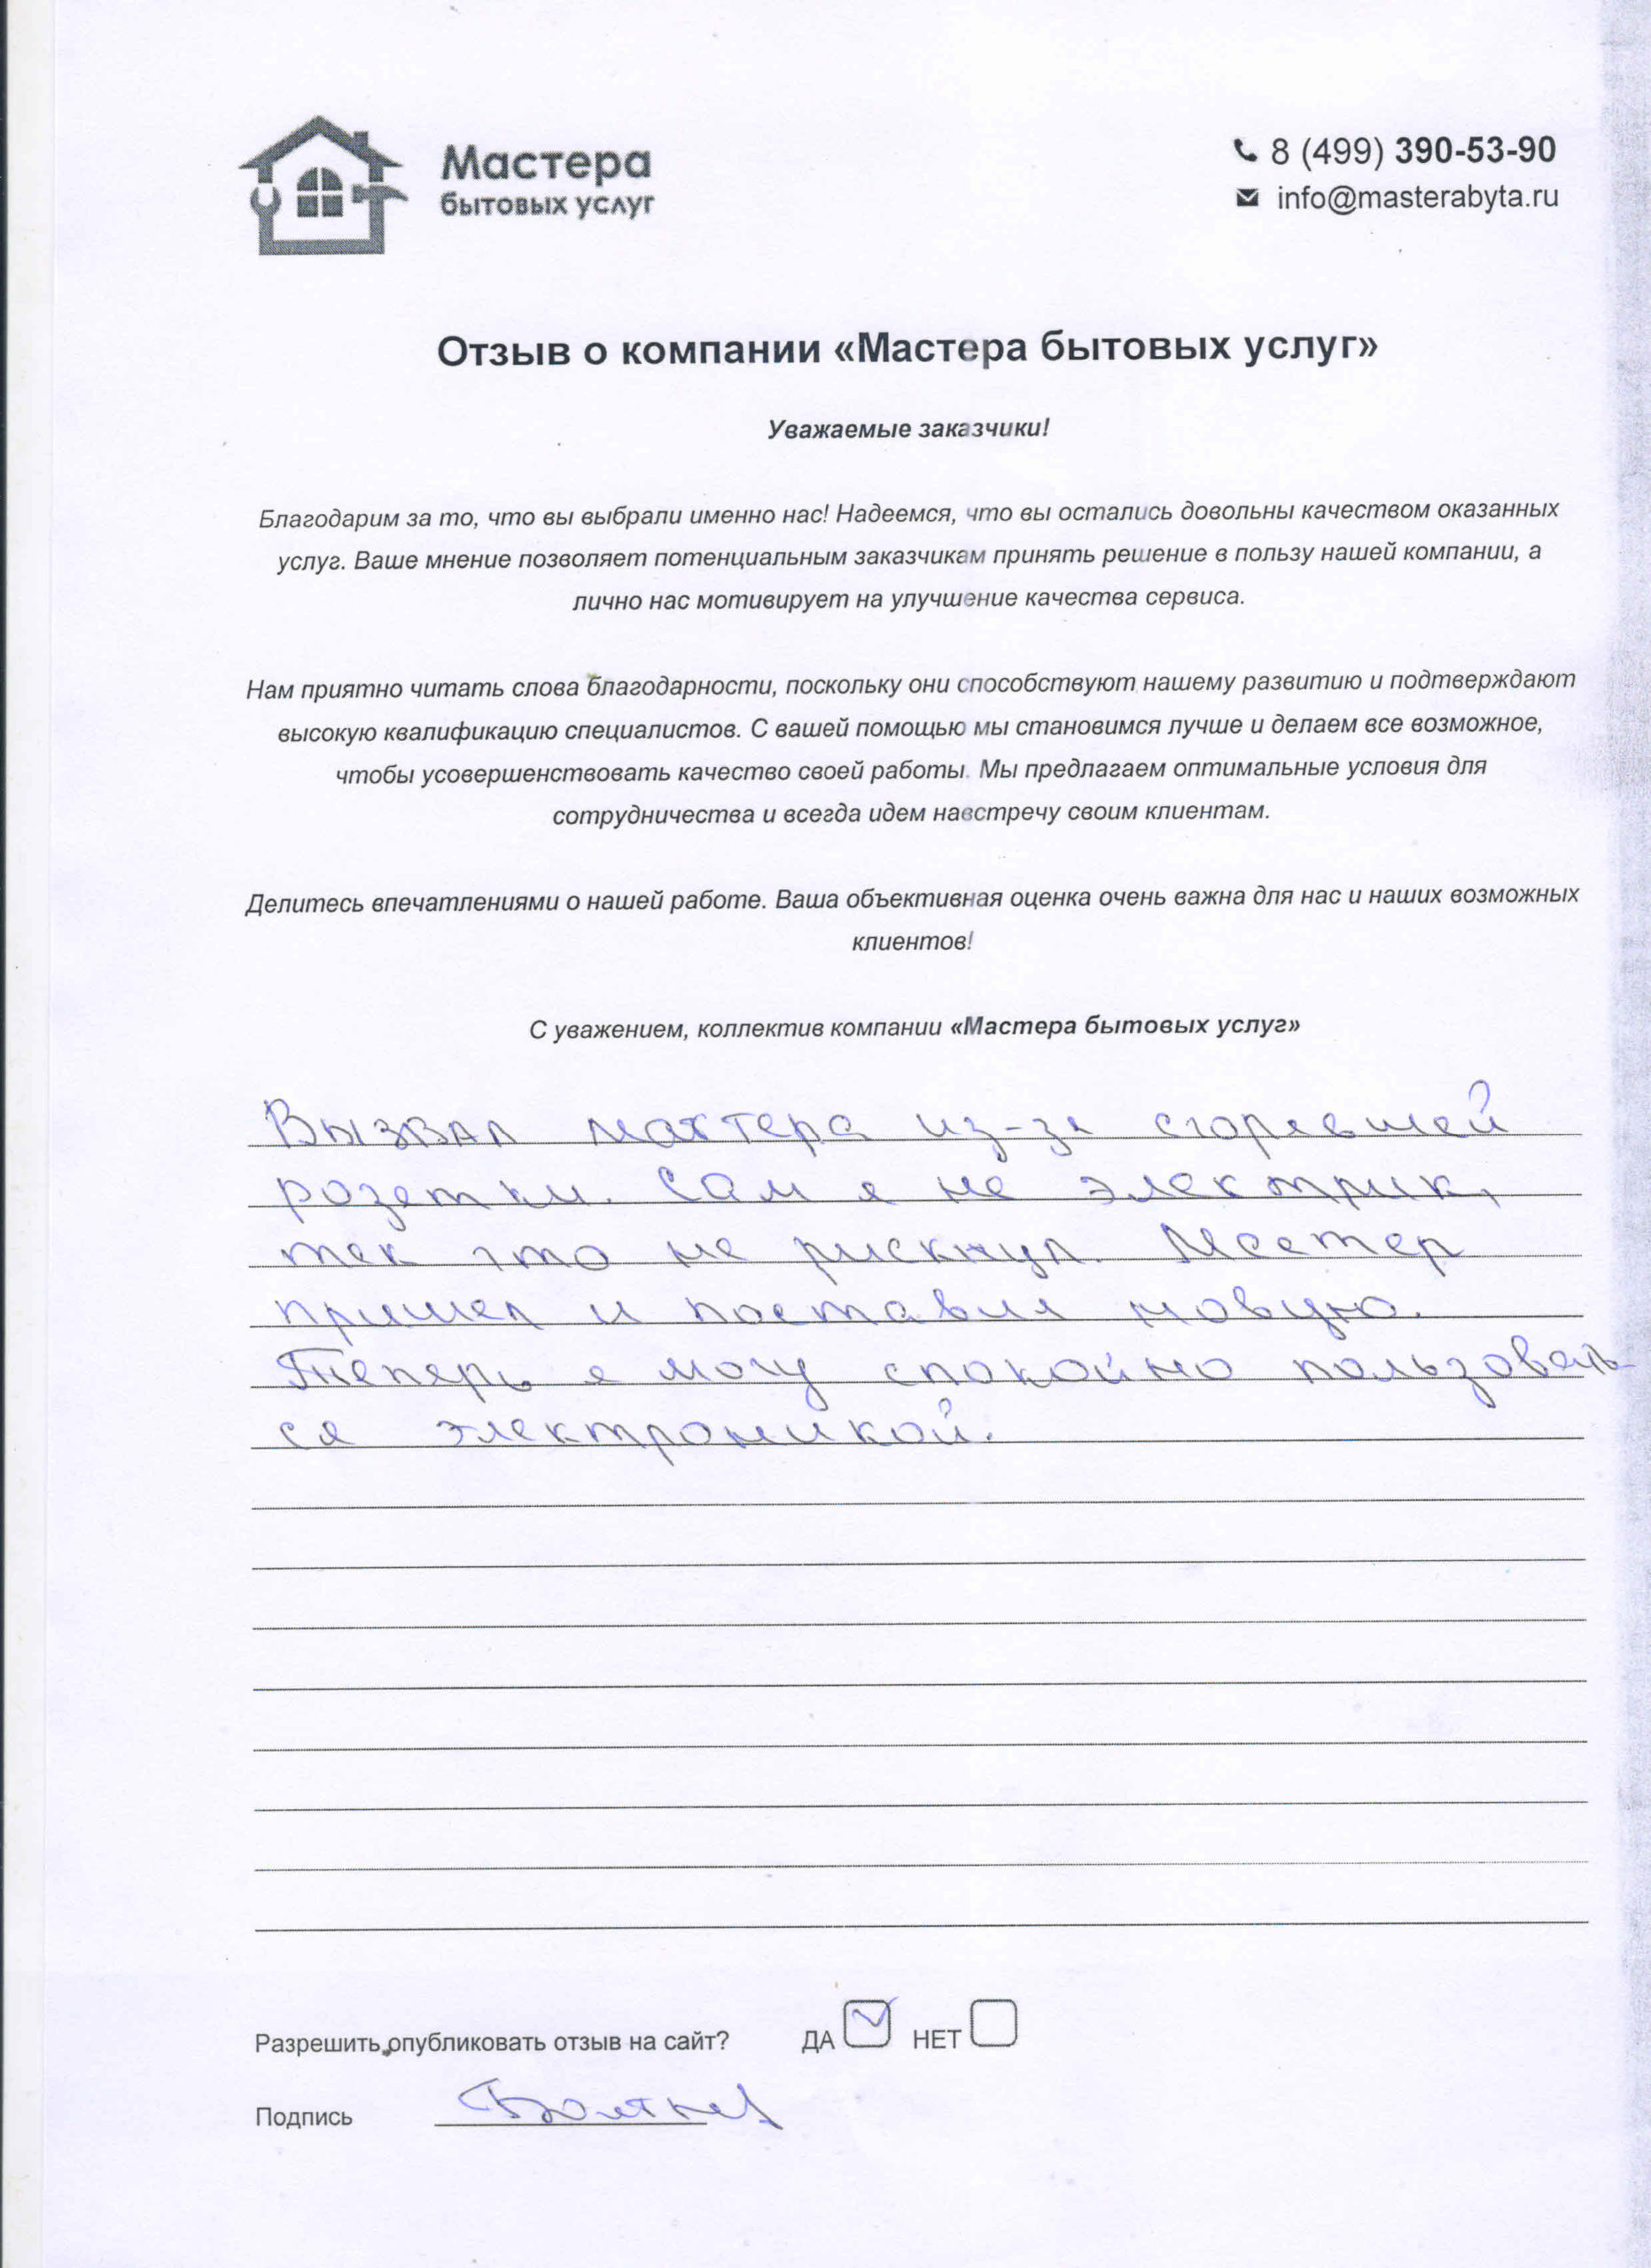 Мастера
бытовых услуг
8 (499) 390-53-90
info@masterabyta.ru
Отзыв о компании «Мастера бытовых услуг»
Уважаемые заказчики!
Благодарим за то, что вы выбрали именно нас! Надеемся, что вы остались довольны качеством оказанных
услуг. Ваше мнение позволяет потенциальным заказчикам принять решение в пользу нашей компании, а
лично нас мотивирует на улучшение качества сервиса.
Нам приятно читать слова благодарности, поскольку они способствуют нашему развитию и подтверждают
высокую квалификацию специалистов. С вашей помощью мы становимся лучше и делаем все возможное,
чтобы усовершенствовать качество своей работы. Мы предлагаем оптимальные условия для
сотрудничества и всегда идем навстречу своим клиентам.
Делитесь впечатлениями о нашей работе. Ваша объективная оценка очень важна для нас и наших возможных
клиентов!
С уважением, коллектив компании «Мастера бытовых услуг»
Вызвал мастера из-за сгоревшей
розетки. Сам я не электрик,
так что не рискнул. Мастер
пришел и поставил новую.
Теперь я могу спокойно пользовать-
ся электроникой.
Разрешить опубликовать отзыв на сайт? ДА НЕТ
Подпись